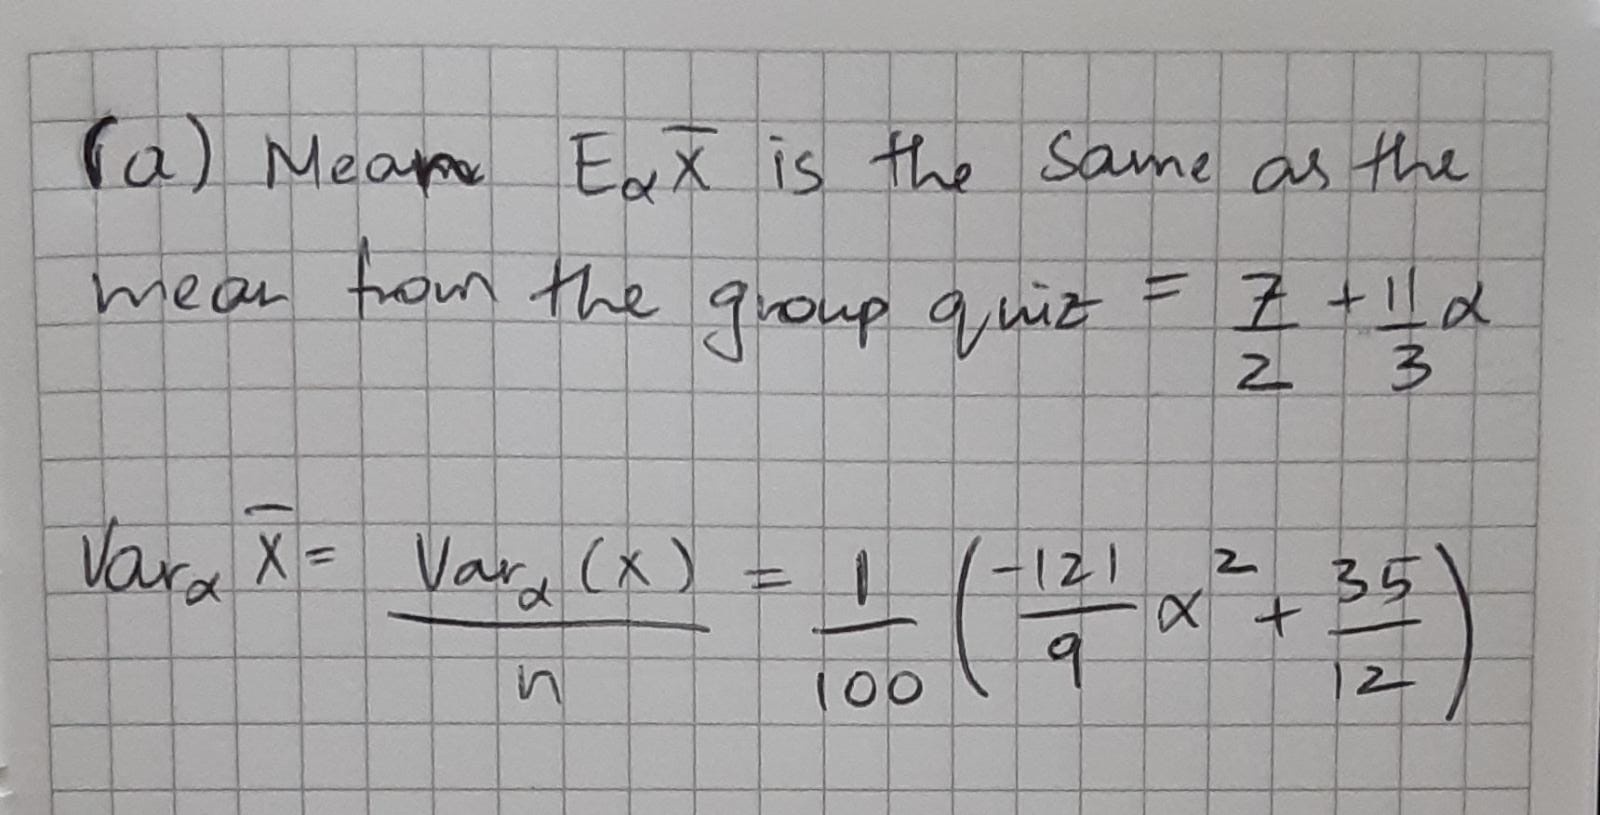 (a) Mean E_α X̄ is the same as the
mean from the group quiz = 7/2 + 11/3 α
Var_α X̄ = Var_α (X) / n = 1/100 (-121/9 α² + 35/12)